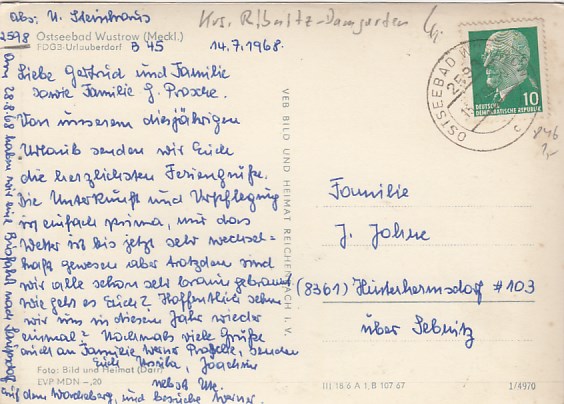 abs: U. Steinhaus
Krs. Ribnitz-Damgarten
2598 Ostseebad Wustrow (Meckl.)
FDGB-Urlauberdorf B 45 14.7.1968.
Liebe Gertrud und Familie
sowie Familie G. Prasse.
Von unserem diesjährigen
Urlaub senden wir Euch
die herzlichsten Feriengrüße.
Die Unterkunft und Verpflegung
ist einfach prima, nur das
Wetter ist bis jetzt sehr wechsel=
haft gewesen aber trotzdem sind
wir alle schon sehr braun gebrannt
wie geht es Euch? Hoffentlich sehn
wir uns in diesem Jahr wieder
einmal? Nochmals viele Grüße
auch an Familie Werner Prasse, senden
Euch Joachim
nebst
Am 28.8.68 haben wir eine Busfahrt nach
auf dem und besuche Werner.
Foto: Bild und Heimat (Darr)
EVP MDN -,20
VEB BILD UND HEIMAT REICHENBACH I. V.
OSTSEEBAD
DEUTSCHE
DEMOKRATISCHE REPUBLIK
10
c
Familie
J. Johne
(8361) Hinterhermsdorf #103
über Sebnitz
III 18 6 A 1, B 107 67
1/4970